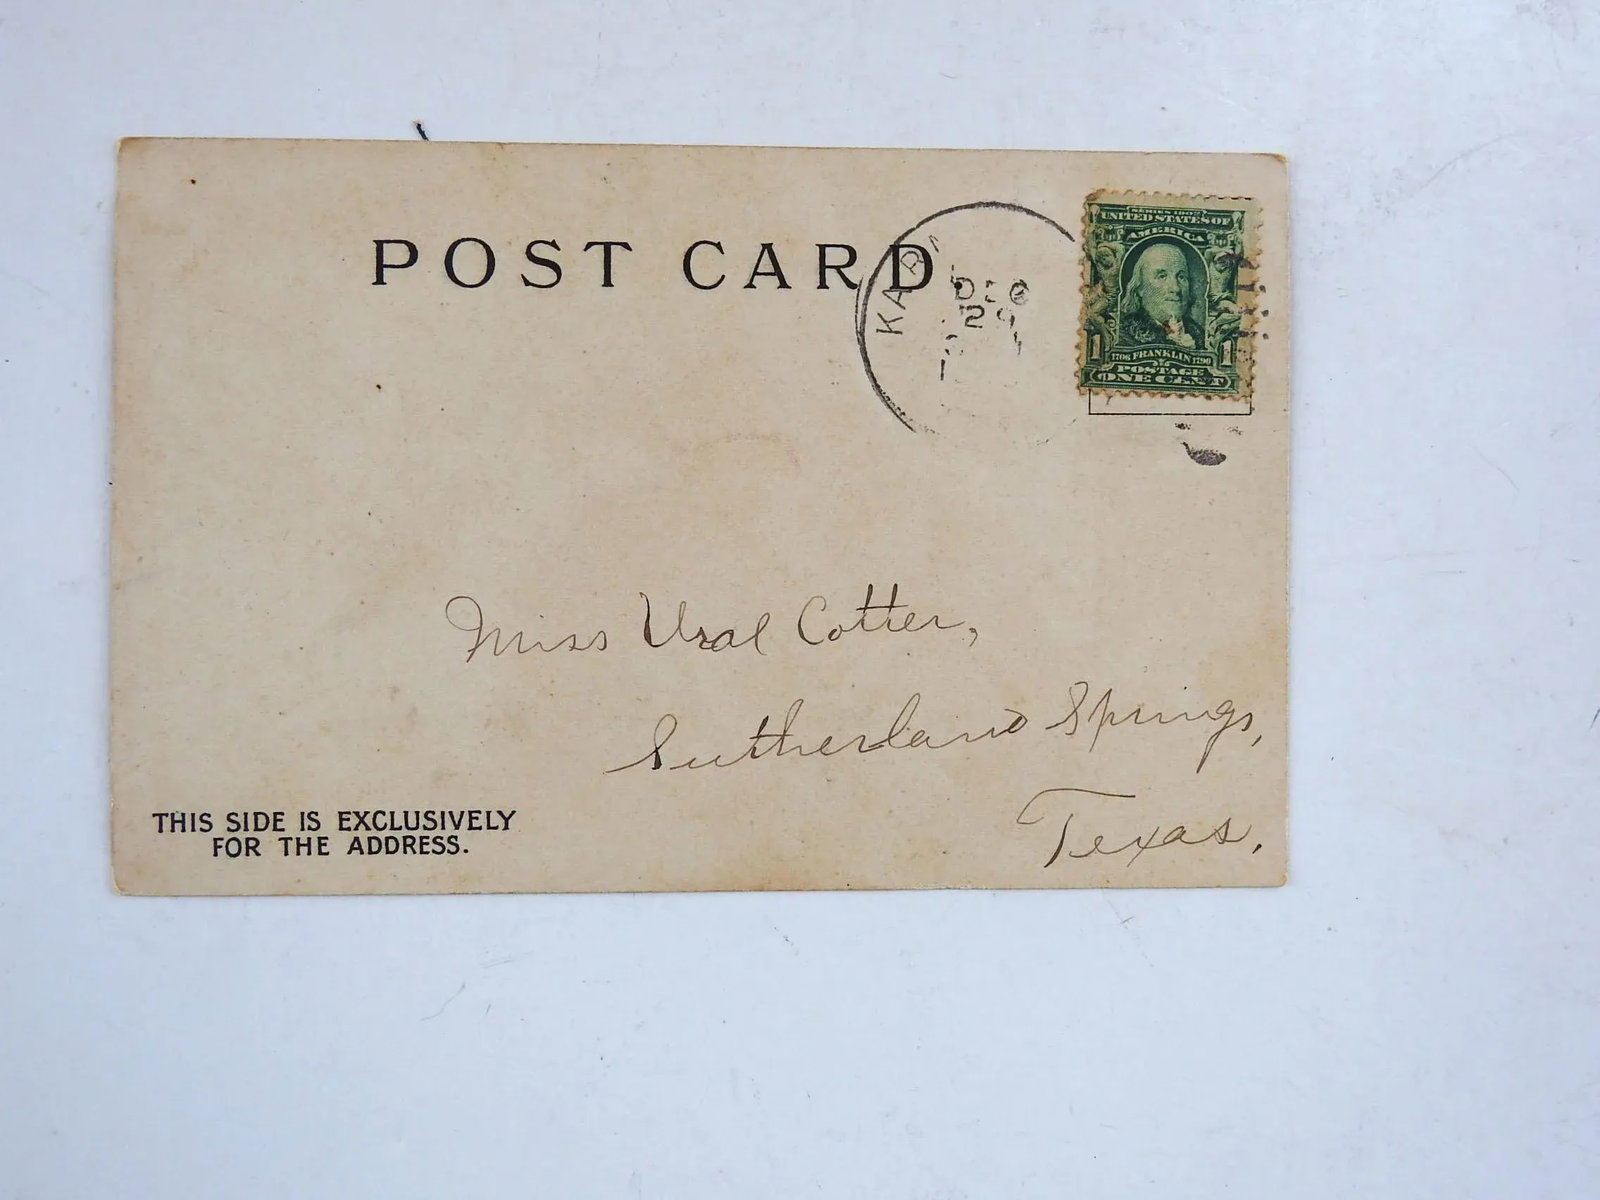 POST CARD
DEC
29
SERIES 1902
UNITED STATES OF
AMERICA
1706 FRANKLIN 1790
1 1
POSTAGE
ONE CENT
Miss Ural Cotter,
Sutherland Springs,
Texas,
THIS SIDE IS EXCLUSIVELY
FOR THE ADDRESS.